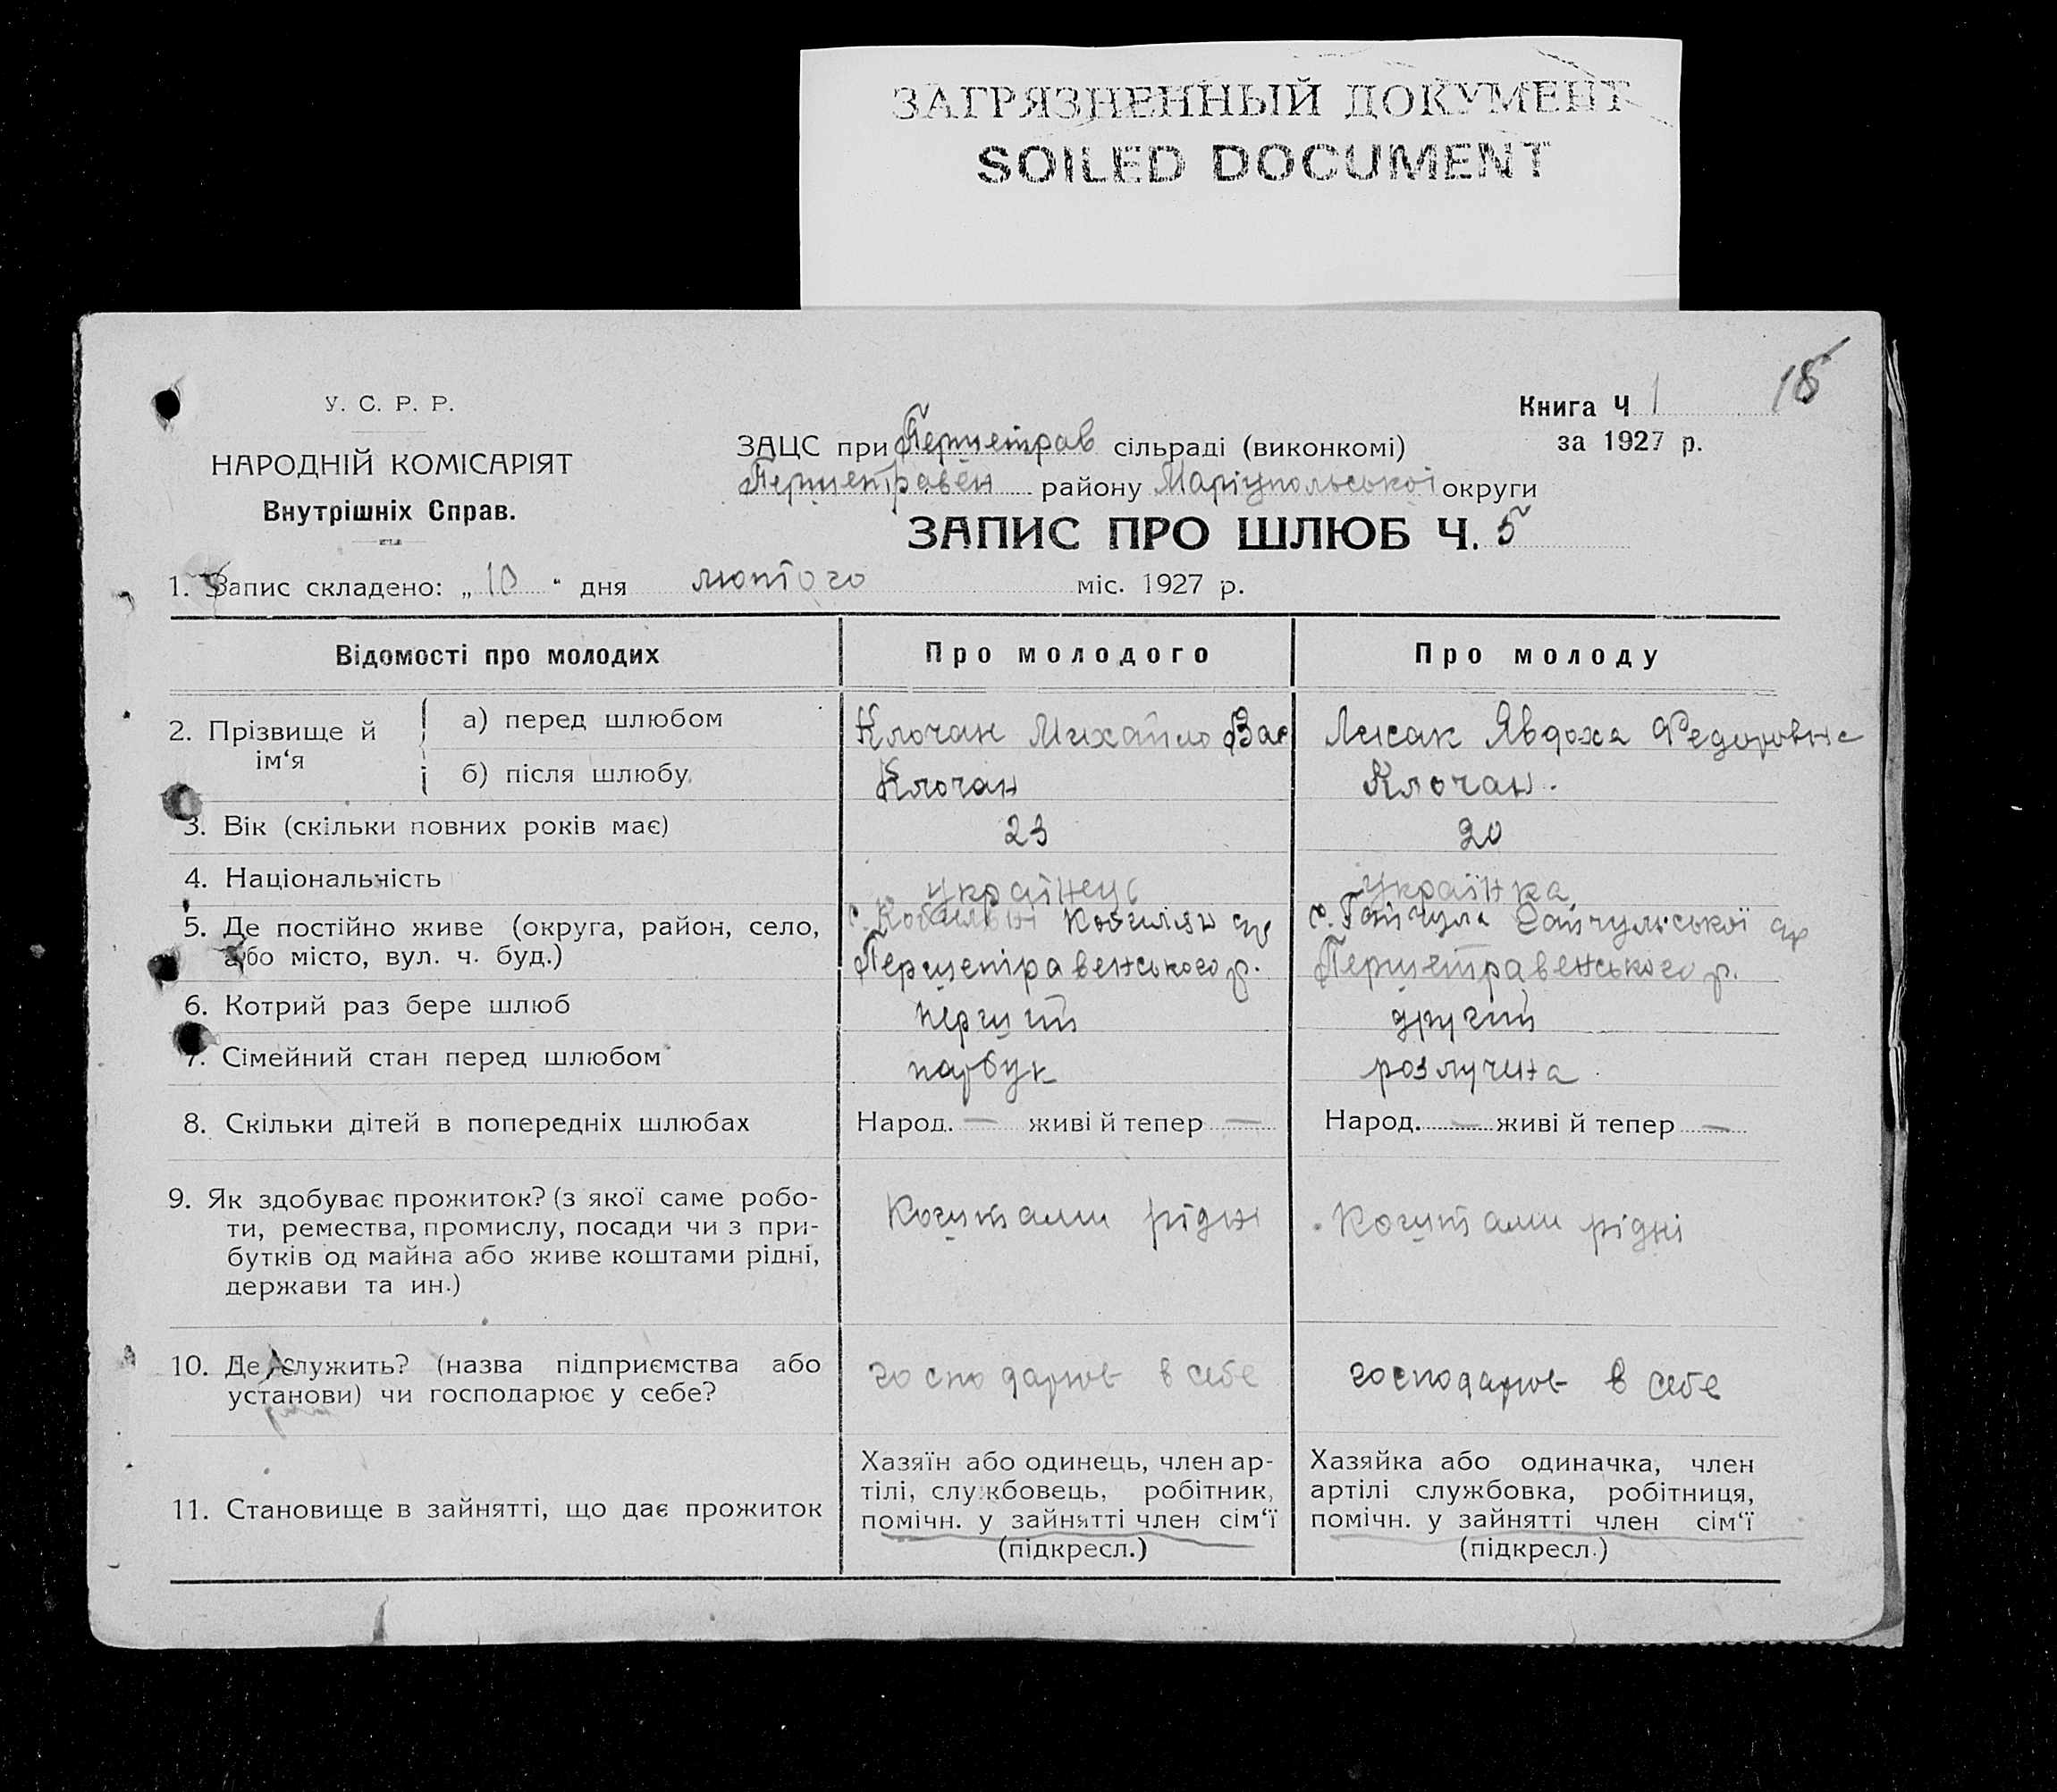 ЗАГРЯЗНЕННЫЙ ДОКУМЕНТ
SOILED DOCUMENT
18
У. С. Р. Р.
НАРОДНІЙ КОМІСАРІЯТ
Внутрішніх Справ.
Книга Ч 1
за 1927 р.
ЗАЦС при Першетрав сільраді (виконкомі)
Першетравен району Маріупольської округи
ЗАПИС ПРО ШЛЮБ Ч. 5
1. Запис складено: „ 10 " дня лютого міс. 1927 р.
Відомості про молодих Про молодого Про молоду
2. Прізвище й ім‘я а) перед шлюбом Клочан Михайло Вас Лисак Явдоха Федоровна
б) після шлюбу Клочан Клочан.
3. Вік (скільки повних років має) 23 20
4. Національність українец українка
5. Де постійно живе (округа, район, село, с. Кобилян с. Гайчула Гайчульської
або місто, вул. ч. буд.) Першетравенського р. Першетравенського р.
6. Котрий раз бере шлюб перший другий
7. Сімейний стан перед шлюбом парубук розлучена
8. Скільки дітей в попередніх шлюбах Народ. — живі й тепер — Народ. — живі й тепер —
9. Як здобуває прожиток? (з якої саме робо-
ти, ремества, промислу, посади чи з при- Коштами рідні Коштами рідні
бутків од майна або живе коштами рідні,
держави та ин.)
10. Де служить? (назва підприємства або господарює в себе господарює в себе
установи) чи господарює у себе?
11. Становище в зайнятті, що дає прожиток
Хазяїн або одинець, член ар-
тілі, службовець, робітник,
помічн. у зайнятті член сім‘ї
(підкресл.)
Хазяйка або одиначка, член
артілі службовка, робітниця,
помічн. у зайнятті член сім‘ї
(підкресл.)